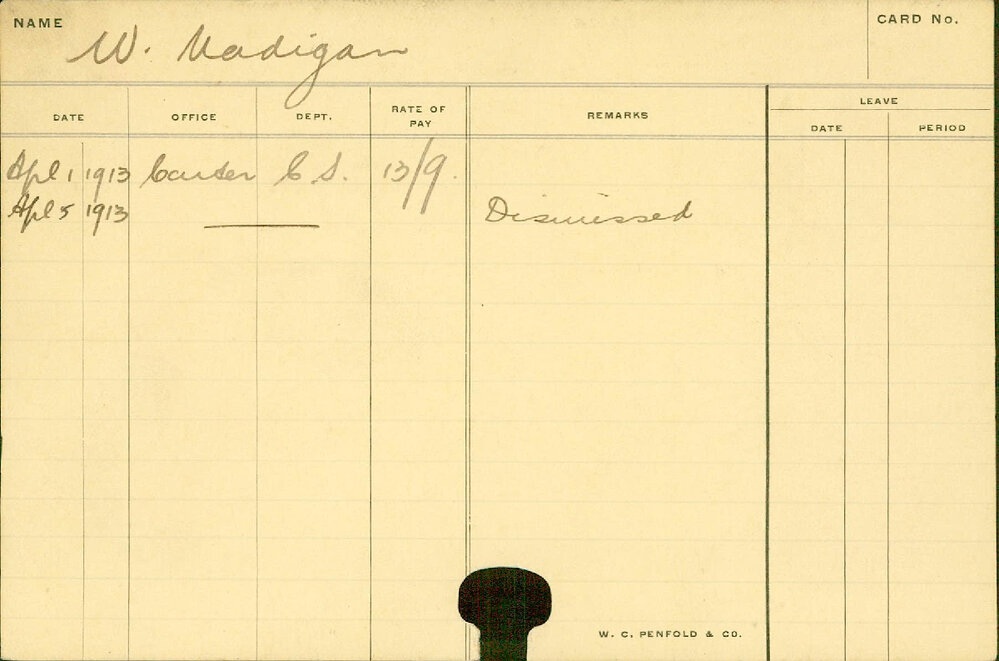 NAME W. Madigan CARD No.
DATE OFFICE DEPT. RATE OF PAY REMARKS LEAVE
DATE PERIOD
Apl 1 1913 Carter C S. 13/9.
Apl 5 1913 Dismissed
W. C. PENFOLD & CO.